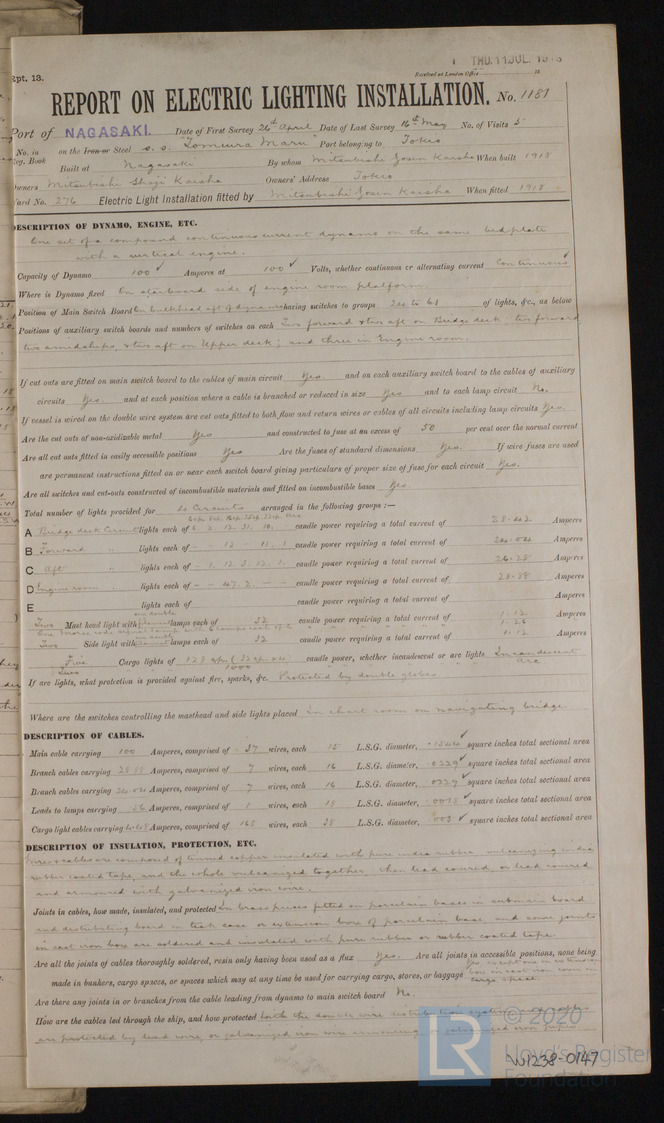 Rpt. 13.
THU. 11 JUL. 19
Received at London Office
REPORT ON ELECTRIC LIGHTING INSTALLATION. No. 1181
Port of NAGASAKI. Date of First Survey 26th April Date of Last Survey 16th May No. of Visits 5
No. in on the Iron or Steel S.S. Maru" Port belonging to Tokio
Reg. Book Built at Nagasaki By whom Mitsubishi Zosen Kaisha When built 1918
Owners Mitsubishi Shoji Kaisha Owners' Address Tokio
Yard No. 276 Electric Light Installation fitted by Mitsubishi Zosen Kaisha When fitted 1918
DESCRIPTION OF DYNAMO, ENGINE, ETC.
One set of a compound continuous current dynamo on the same bedplate
with a vertical engine.
Capacity of Dynamo 100 Amperes at 100 Volts, whether continuous or alternating current Continuous
Where is Dynamo fixed On starboard side of engine room platform.
Position of Main Switch Board On bulkhead aft of dynamo having switches to groups of lights, &c., as below
Positions of auxiliary switch boards and numbers of switches on each Two forward & two aft on Bridge deck, two forward
two amidships, & two aft on Upper deck; and three in Engine room.
If cut outs are fitted on main switch board to the cables of main circuit Yes. and on each auxiliary switch board to the cables of auxiliary
circuits Yes and at each position where a cable is branched or reduced in size Yes and to each lamp circuit No.
If vessel is wired on the double wire system are cut outs fitted to both flow and return wires or cables of all circuits including lamp circuits Yes.
Are the cut outs of non-oxidizable metal Yes and constructed to fuse at an excess of 50 per cent over the normal current
Are all cut outs fitted in easily accessible positions Yes Are the fuses of standard dimensions Yes. If wire fuses are used
are permanent instructions fitted on or near each switch board giving particulars of proper size of fuse for each circuit Yes.
Are all switches and cut-outs constructed of incombustible materials and fitted on incombustible bases Yes
Total number of lights provided for Circuits arranged in the following groups :—
A Bridge deck Circuit lights each of candle power requiring a total current of 28.42 Amperes
B Forward " lights each of candle power requiring a total current of 24.04 Amperes
C Aft " lights each of candle power requiring a total current of 26.28 Amperes
D Engine room " lights each of candle power requiring a total current of 28.38 Amperes
E lights each of candle power requiring a total current of Amperes
Two Mast head light with lamps each of 32 candle power requiring a total current of 1.12 Amperes
Two Side light with lamps each of 32 candle power requiring a total current of 1.12 Amperes
Five Cargo lights of 128 candle power, whether incandescent or arc lights Incandescent
Two 1000 " " Arc
If arc lights, what protection is provided against fire, sparks, &c. Protected by double globes
Where are the switches controlling the masthead and side lights placed In chart room on navigating bridge.
DESCRIPTION OF CABLES.
Main cable carrying 100 Amperes, comprised of 37 wires, each 15 L.S.G. diameter, .1544 square inches total sectional area
Branch cables carrying Amperes, comprised of 7 wires, each 16 L.S.G. diameter, .0229 square inches total sectional area
Branch cables carrying 24.04 Amperes, comprised of 7 wires, each 16 L.S.G. diameter, .0229 square inches total sectional area
Leads to lamps carrying .56 Amperes, comprised of 1 wires, each L.S.G. diameter, square inches total sectional area
Cargo light cables carrying Amperes, comprised of 168 wires, each 38 L.S.G. diameter, square inches total sectional area
DESCRIPTION OF INSULATION, PROTECTION, ETC.
Wires & cables are composed of tinned copper insulated with pure india rubber, vulcanizing india
rubber coated tape, and the whole vulcanized together, then lead covered, or lead covered
and armoured with galvanized iron wire.
Joints in cables, how made, insulated, and protected In brass pieces fitted on porcelain bases in main board
and distributing board in teak case or extension box of porcelain base, and some joints
in cast iron box are soldered and insulated with pure rubber or rubber coated tape.
Are all the joints of cables thoroughly soldered, resin only having been used as a flux Yes. Are all joints in accessible positions, none being
made in bunkers, cargo spaces, or spaces which may at any time be used for carrying cargo, stores, or baggage
Are there any joints in or branches from the cable leading from dynamo to main switch board No.
How are the cables led through the ship, and how protected with the double wire distribution system
are protected by lead wire, or galvanized iron wire armouring or galvanized iron
LR
© 2020
Lloyd's Register
Foundation
W1238-0147